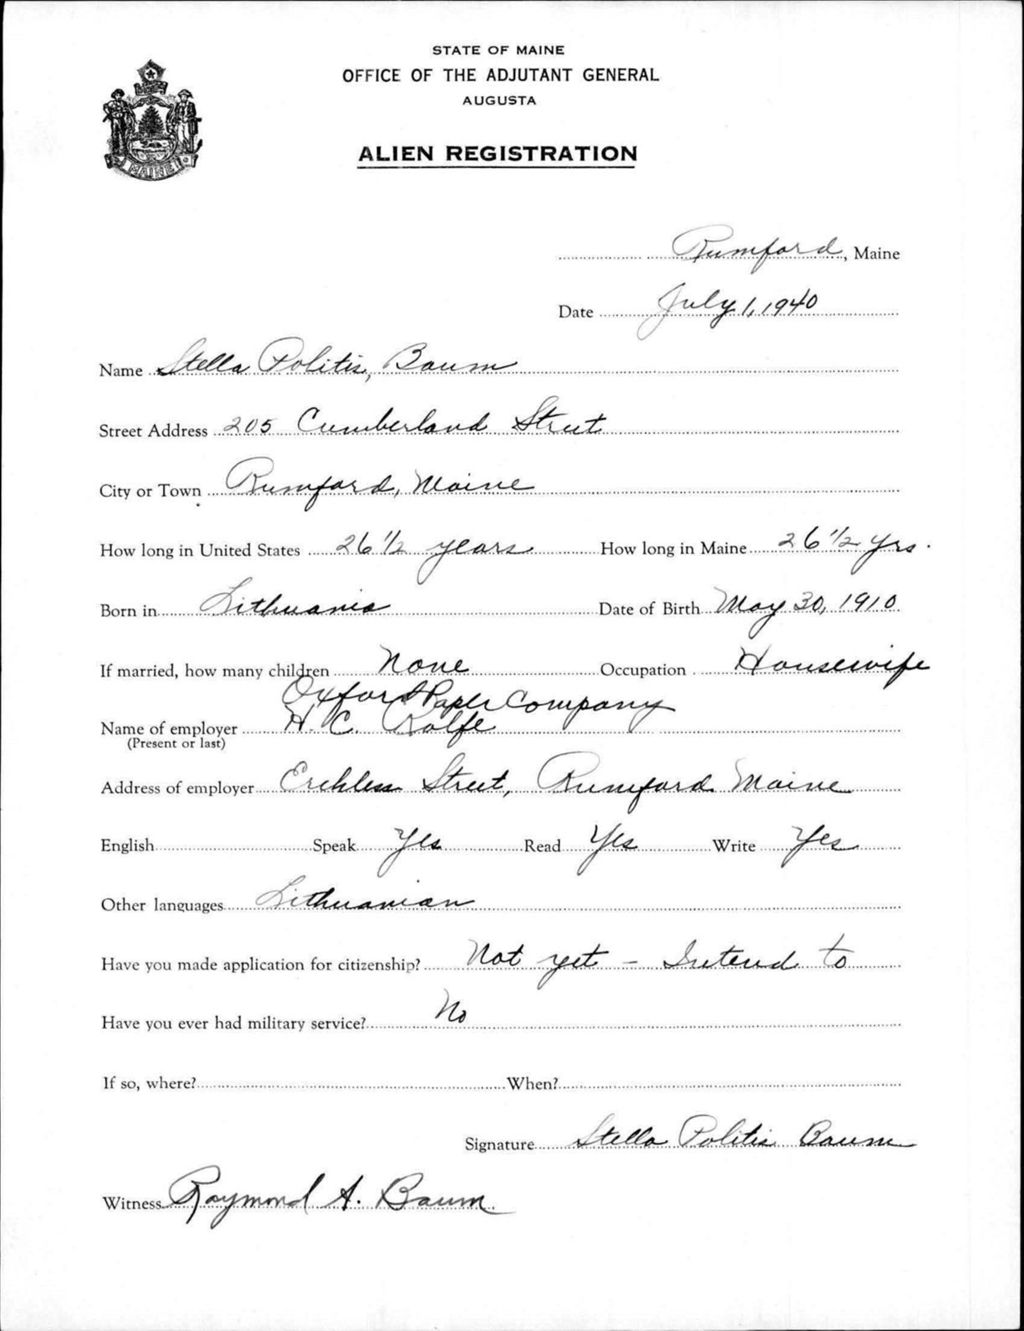 STATE OF MAINE
OFFICE OF THE ADJUTANT GENERAL
AUGUSTA
ALIEN REGISTRATION
MAINE
Rumford, Maine
Date July 1, 1940
Name Stella Politis, Baum
Street Address 205 Cumberland Street
City or Town Rumford, Maine
How long in United States 26 1/2 years How long in Maine 26 1/2 yrs.
Born in Lithuania Date of Birth May 30, 1910
If married, how many children None Occupation Housewife
Oxford Paper Company
Name of employer H. C. Rolfe
(Present or last)
Address of employer Erchless Street, Rumford Maine
English Speak Yes Read Yes Write Yes
Other languages Lithuanian
Have you made application for citizenship? Not yet – Intend to
Have you ever had military service? No
If so, where? When?
Signature Stella Politis Baum
Witness Raymond A. Baum.